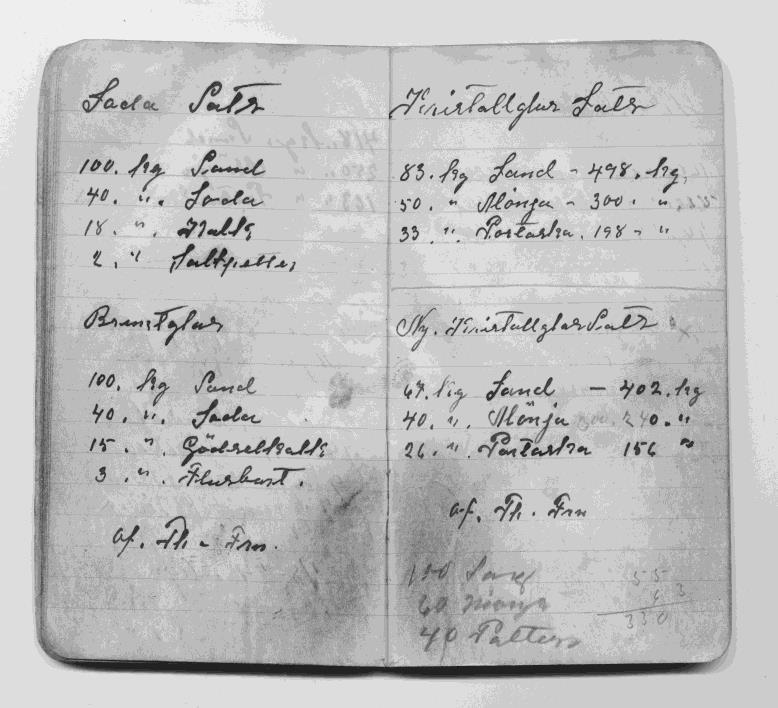 Soda Satz
100. kg Sand
40. ". Soda
18 ". Kalk
2. " Saltpetter
Brunstglas
100. kg Sand
40. ". Soda
15. ". Gödselkalk
3. ".
af. Th. Frn.
Kristallglas Satz
83. kg Sand - 498. kg.
50. " Mönja - 300. "
33. ". Pottaska. 198 - "
Ny. Kristallglas Satz x
67. kg Sand — 402. kg
40. ". Mönja 240. "
26. ". Pottaska 156 "
af. Th. Frn
100 Sand
60 Mönja
40
55
6 3
330